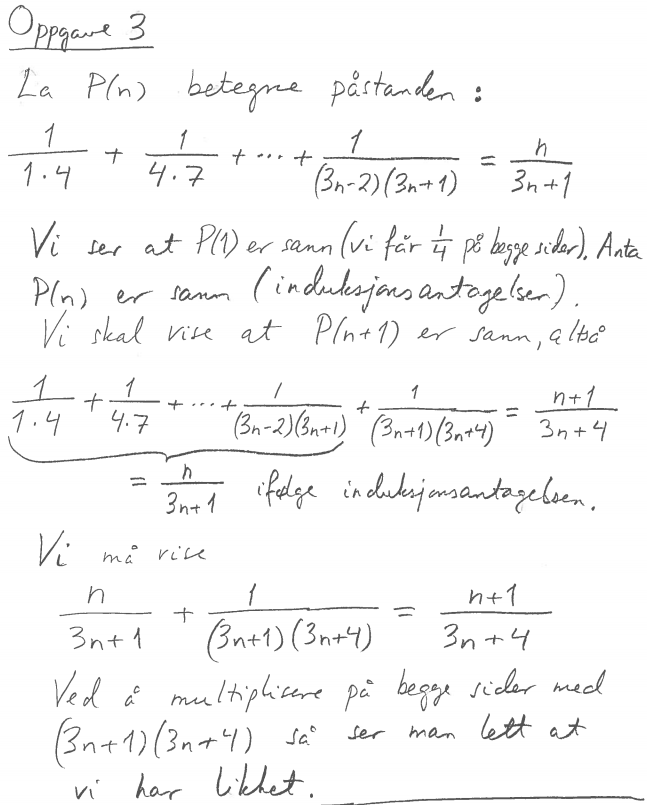 Oppgave 3
La P(n) betegne påstanden :
1/(1·4) + 1/(4·7) + ··· + 1/((3n-2)(3n+1)) = n/(3n+1)
Vi ser at P(1) er sann (vi får 1/4 på begge sider). Anta
P(n) er sann (induksjonsantagelsen).
Vi skal vise at P(n+1) er sann, altså
1/(1·4) + 1/(4·7) + ··· + 1/((3n-2)(3n+1)) + 1/((3n+1)(3n+4)) = (n+1)/(3n+4)
= n/(3n+1) ifølge induksjonsantagelsen.
Vi må vise
n/(3n+1) + 1/((3n+1)(3n+4)) = (n+1)/(3n+4)
Ved å multiplisere på begge sider med
(3n+1)(3n+4) så ser man lett at
vi har likhet.